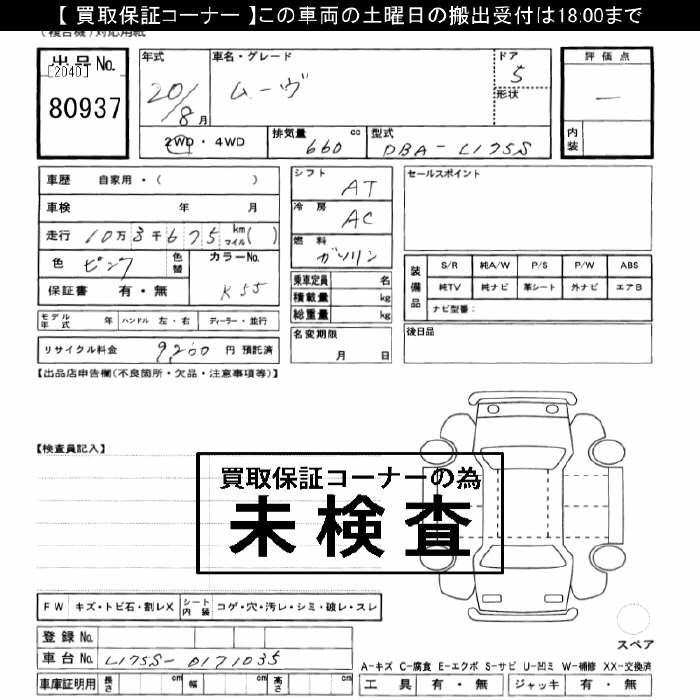 【 買取保証コーナー 】この車両の土曜日の搬出受付は18:00まで
(複合機)対応用紙
出品No.
[2040]
80937
年式
20/8月
車名・グレード
ムーヴ
ドア
5
形状
評価点
—
内装
2WD・4WD
排気量 660 cc
型式 DBA-L175S
車歴 自家用・( )
車検 年 月
走行 10万3千675 km マイル( )
色 ピンク
色替
カラーNo. K55
保証書 有・無
シフト AT
冷房 AC
燃料 ガソリン
乗車定員 名
積載量 kg
総重量 kg
名変期限
月 日
セールスポイント
装備品
S/R 純A/W P/S P/W ABS
純TV 純ナビ 革シート 外ナビ エアB
ナビ型番:
後日品
モデル年式 年 ハンドル 左・右 ディーラー・並行
リサイクル料金 9,200 円 預託済
【出品店申告欄(不良箇所・欠品・注意事項等)】
【検査員記入】
買取保証コーナーの為
未検査
FW キズ・トビ石・割レX シート内装 コゲ・穴・汚レ・シミ・破レ・スレ
登録No.
車台No. L175S-0171035
車庫証明用 長さ cm 幅 cm 高さ cm
スペア
A-キズ C-腐食 E-エクボ S-サビ U-凹ミ W-補修 XX-交換済
工具 有・無 ジャッキ 有・無